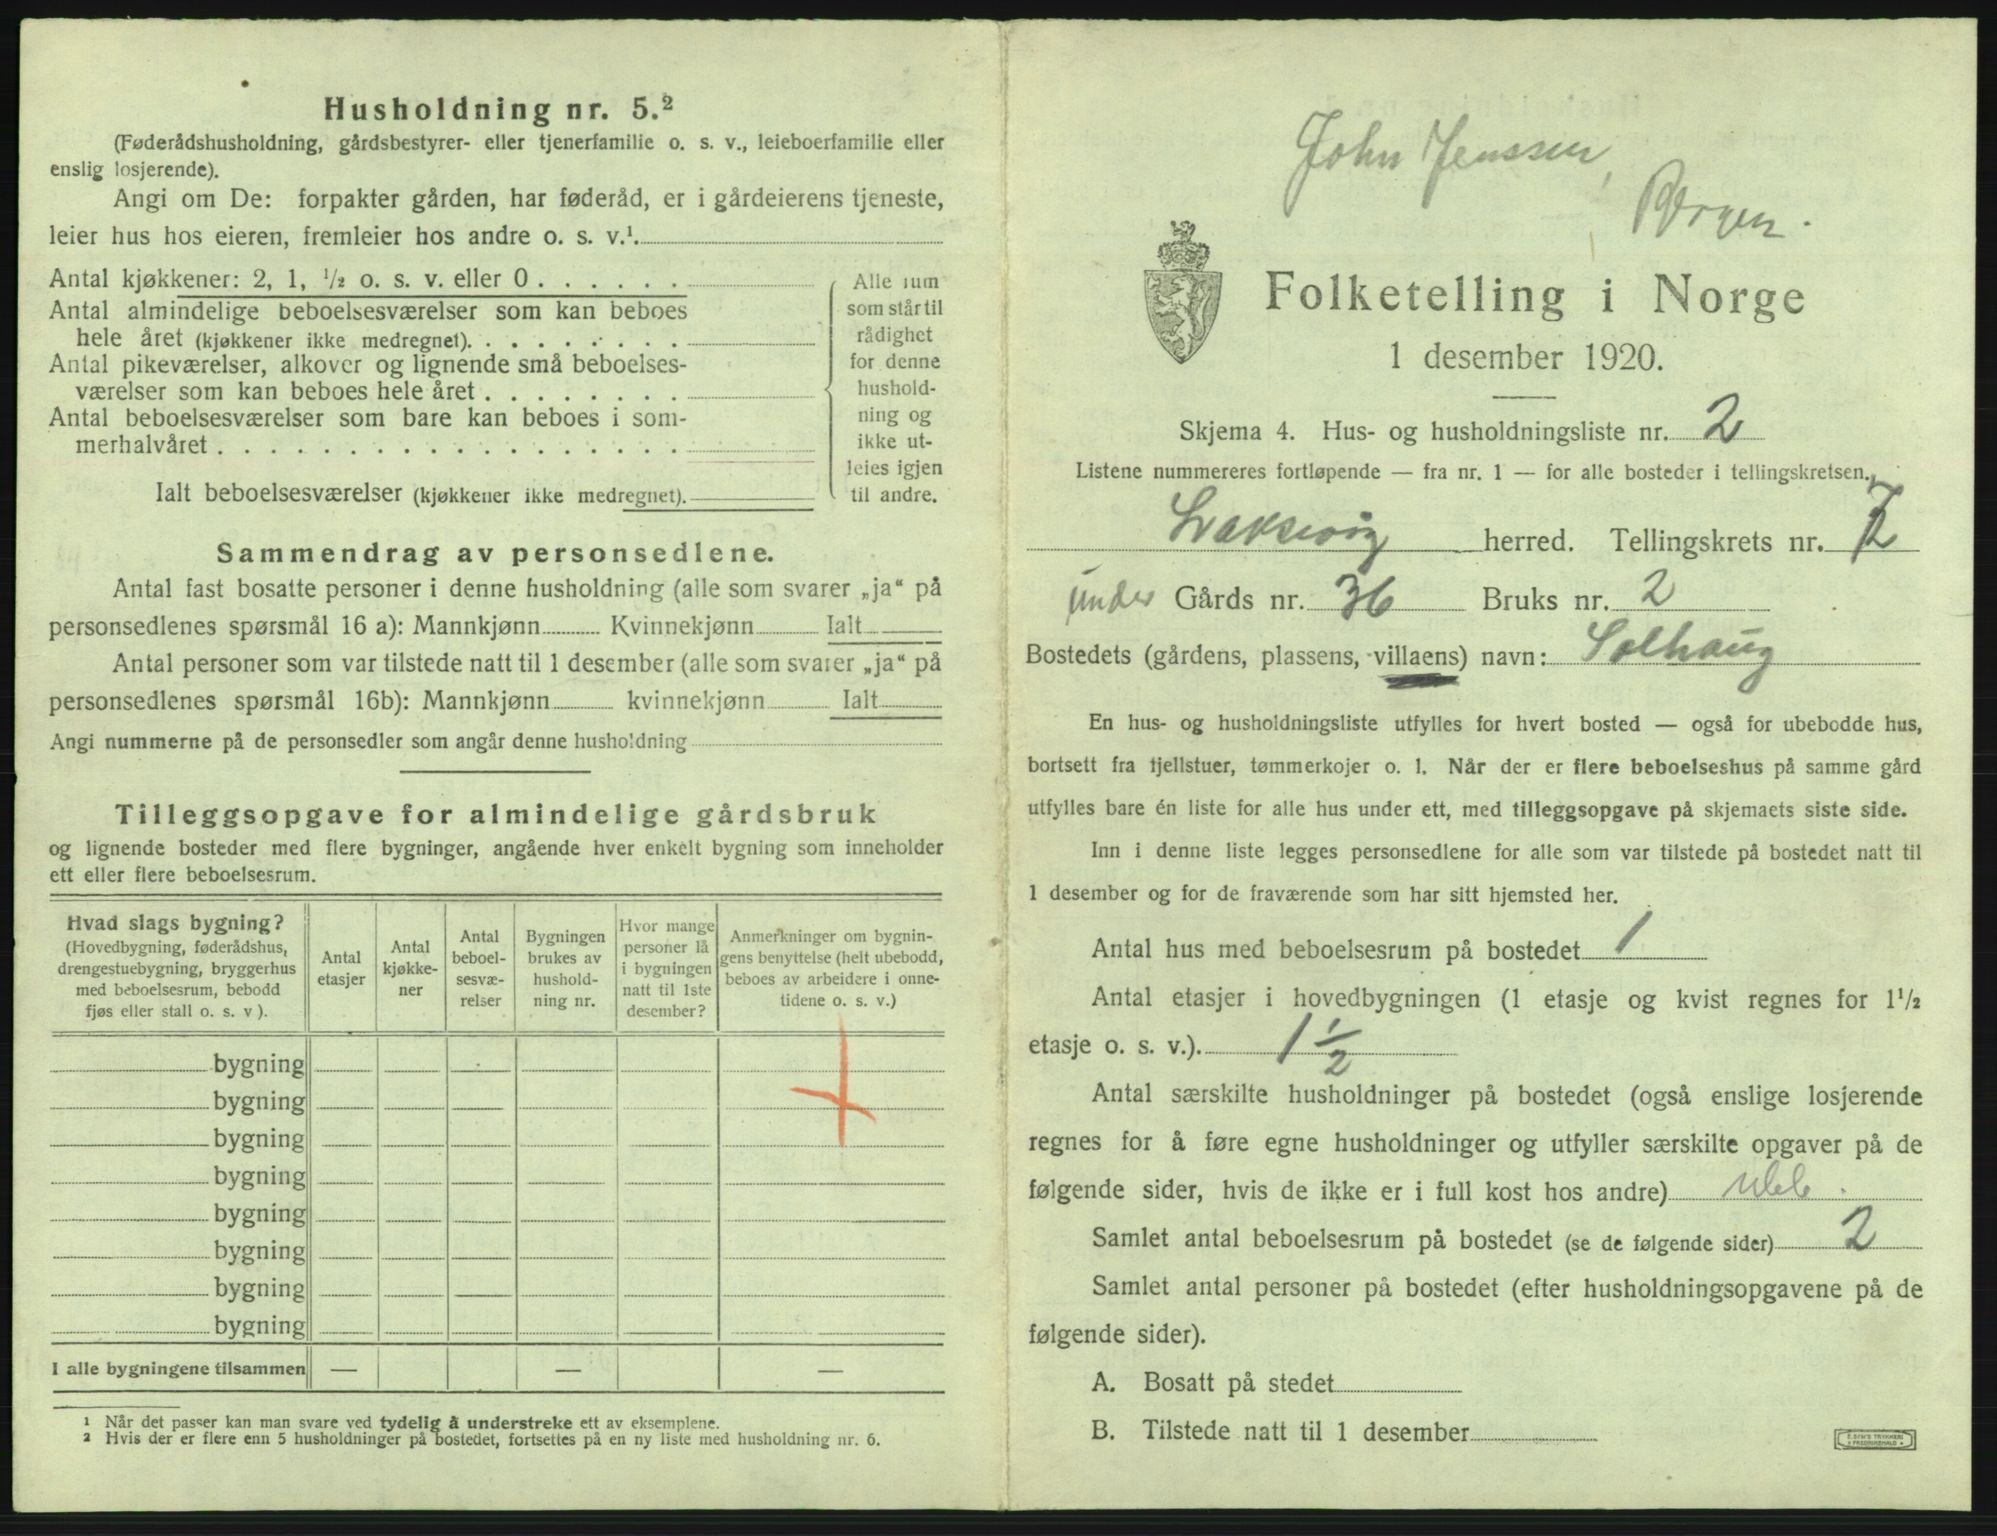 Husholdning nr. 5.²
(Føderådshusholdning, gårdsbestyrer- eller tjenerfamilie o. s. v., leieboerfamilie eller
enslig losjerende).
Angi om De: forpakter gården, har føderåd, er i gårdeierens tjeneste,
leier hus hos eieren, fremleier hos andre o. s. v.¹.
Antal kjøkkener: 2, 1, ¹/₂ o. s. v. eller 0 . . . . . .
Antal almindelige beboelsesværelser som kan beboes
hele året (kjøkkener ikke medregnet). . . . . . . . .
Antal pikeværelser, alkover og lignende små beboelses-
værelser som kan beboes hele året . . . . . . . .
Antal beboelsesværelser som bare kan beboes i som-
merhalvåret . . . . . . . . . . . . . . . . . .
Ialt beboelsesværelser (kjøkkener ikke medregnet).
Alle rum
som står til
rådighet
for denne
hushold-
ning og
ikke ut-
leies igjen
til andre.
Sammendrag av personsedlene.
Antal fast bosatte personer i denne husholdning (alle som svarer „ja“ på
personsedlenes spørsmål 16 a): Mannkjønn Kvinnekjønn Ialt
Antal personer som var tilstede natt til 1 desember (alle som svarer „ja“ på
personsedlenes spørsmål 16b): Mannkjønn kvinnekjønn Ialt
Angi nummerne på de personsedler som angår denne husholdning
Tilleggsopgave for almindelige gårdsbruk
og lignende bosteder med flere bygninger, angående hver enkelt bygning som inneholder
ett eller flere beboelsesrum.
Hvad slags bygning?
(Hovedbygning, føderådshus,
drengestuebygning, bryggerhus
med beboelsesrum, bebodd
fjøs eller stall o. s. v ).
Antal
etasjer
Antal
kjøkke-
ner
Antal
beboel-
sesvæ-
relser
Bygningen
brukes av
hushold-
ning nr.
Hvor mange
personer lå
i bygningen
natt til 1ste
desember?
Anmerkninger om bygnin-
gens benyttelse (helt ubebodd,
beboes av arbeidere i onne-
tidene o. s. v.)
bygning
bygning
bygning
bygning
bygning
bygning
bygning
bygning
I alle bygningene tilsammen — — —
¹ Når det passer kan man svare ved tydelig å understreke ett av eksemplene.
² Hvis der er flere enn 5 husholdninger på bostedet, fortsettes på en ny liste med husholdning nr. 6.
John Jenssen,
Bergen.
Folketelling i Norge
1 desember 1920.
Skjema 4. Hus- og husholdningsliste nr. 2
Listene nummereres fortløpende — fra nr. 1 — for alle bosteder i tellingskretsen.
Laksevåg herred. Tellingskrets nr.
under Gårds nr. 36 Bruks nr. 2
Bostedets (gårdens, plassens, villaens) navn: Solhaug
En hus- og husholdningsliste utfylles for hvert bosted — også for ubebodde hus,
bortsett fra fjellstuer, tømmerkojer o. l. Når der er flere beboelseshus på samme gård
utfylles bare én liste for alle hus under ett, med tilleggsopgave på skjemaets siste side.
Inn i denne liste legges personsedlene for alle som var tilstede på bostedet natt til
1 desember og for de fraværende som har sitt hjemsted her.
Antal hus med beboelsesrum på bostedet 1
Antal etasjer i hovedbygningen (1 etasje og kvist regnes for 1¹/₂
etasje o. s. v.). 1 ½
Antal særskilte husholdninger på bostedet (også enslige losjerende
regnes for å føre egne husholdninger og utfyller særskilte opgaver på de
følgende sider, hvis de ikke er i full kost hos andre)
Samlet antal beboelsesrum på bostedet (se de følgende sider) 2
Samlet antal personer på bostedet (efter husholdningsopgavene på de
følgende sider).
A. Bosatt på stedet
B. Tilstede natt til 1 desember